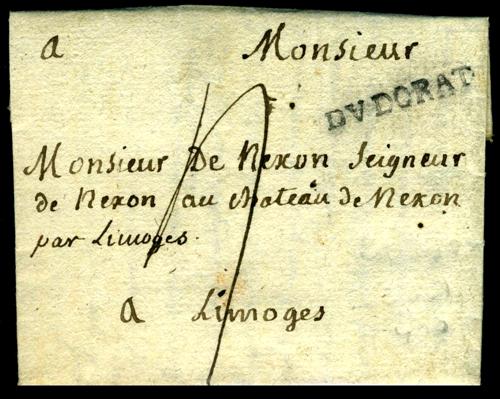 a Monsieur
DV DORAT
Monsieur De Nexon Seigneur
de Nexon au chateau de Nexon
par Limoges.
a Limoges